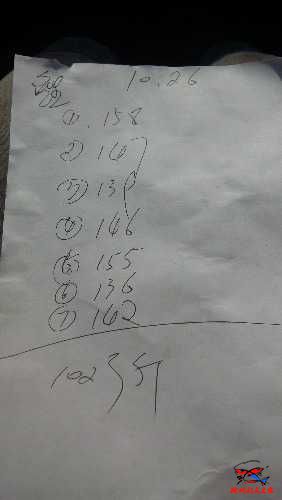 10.26
① 158
② 147
③ 139
④ 146
⑤ 155
⑥ 136
⑦ 142
1023斤